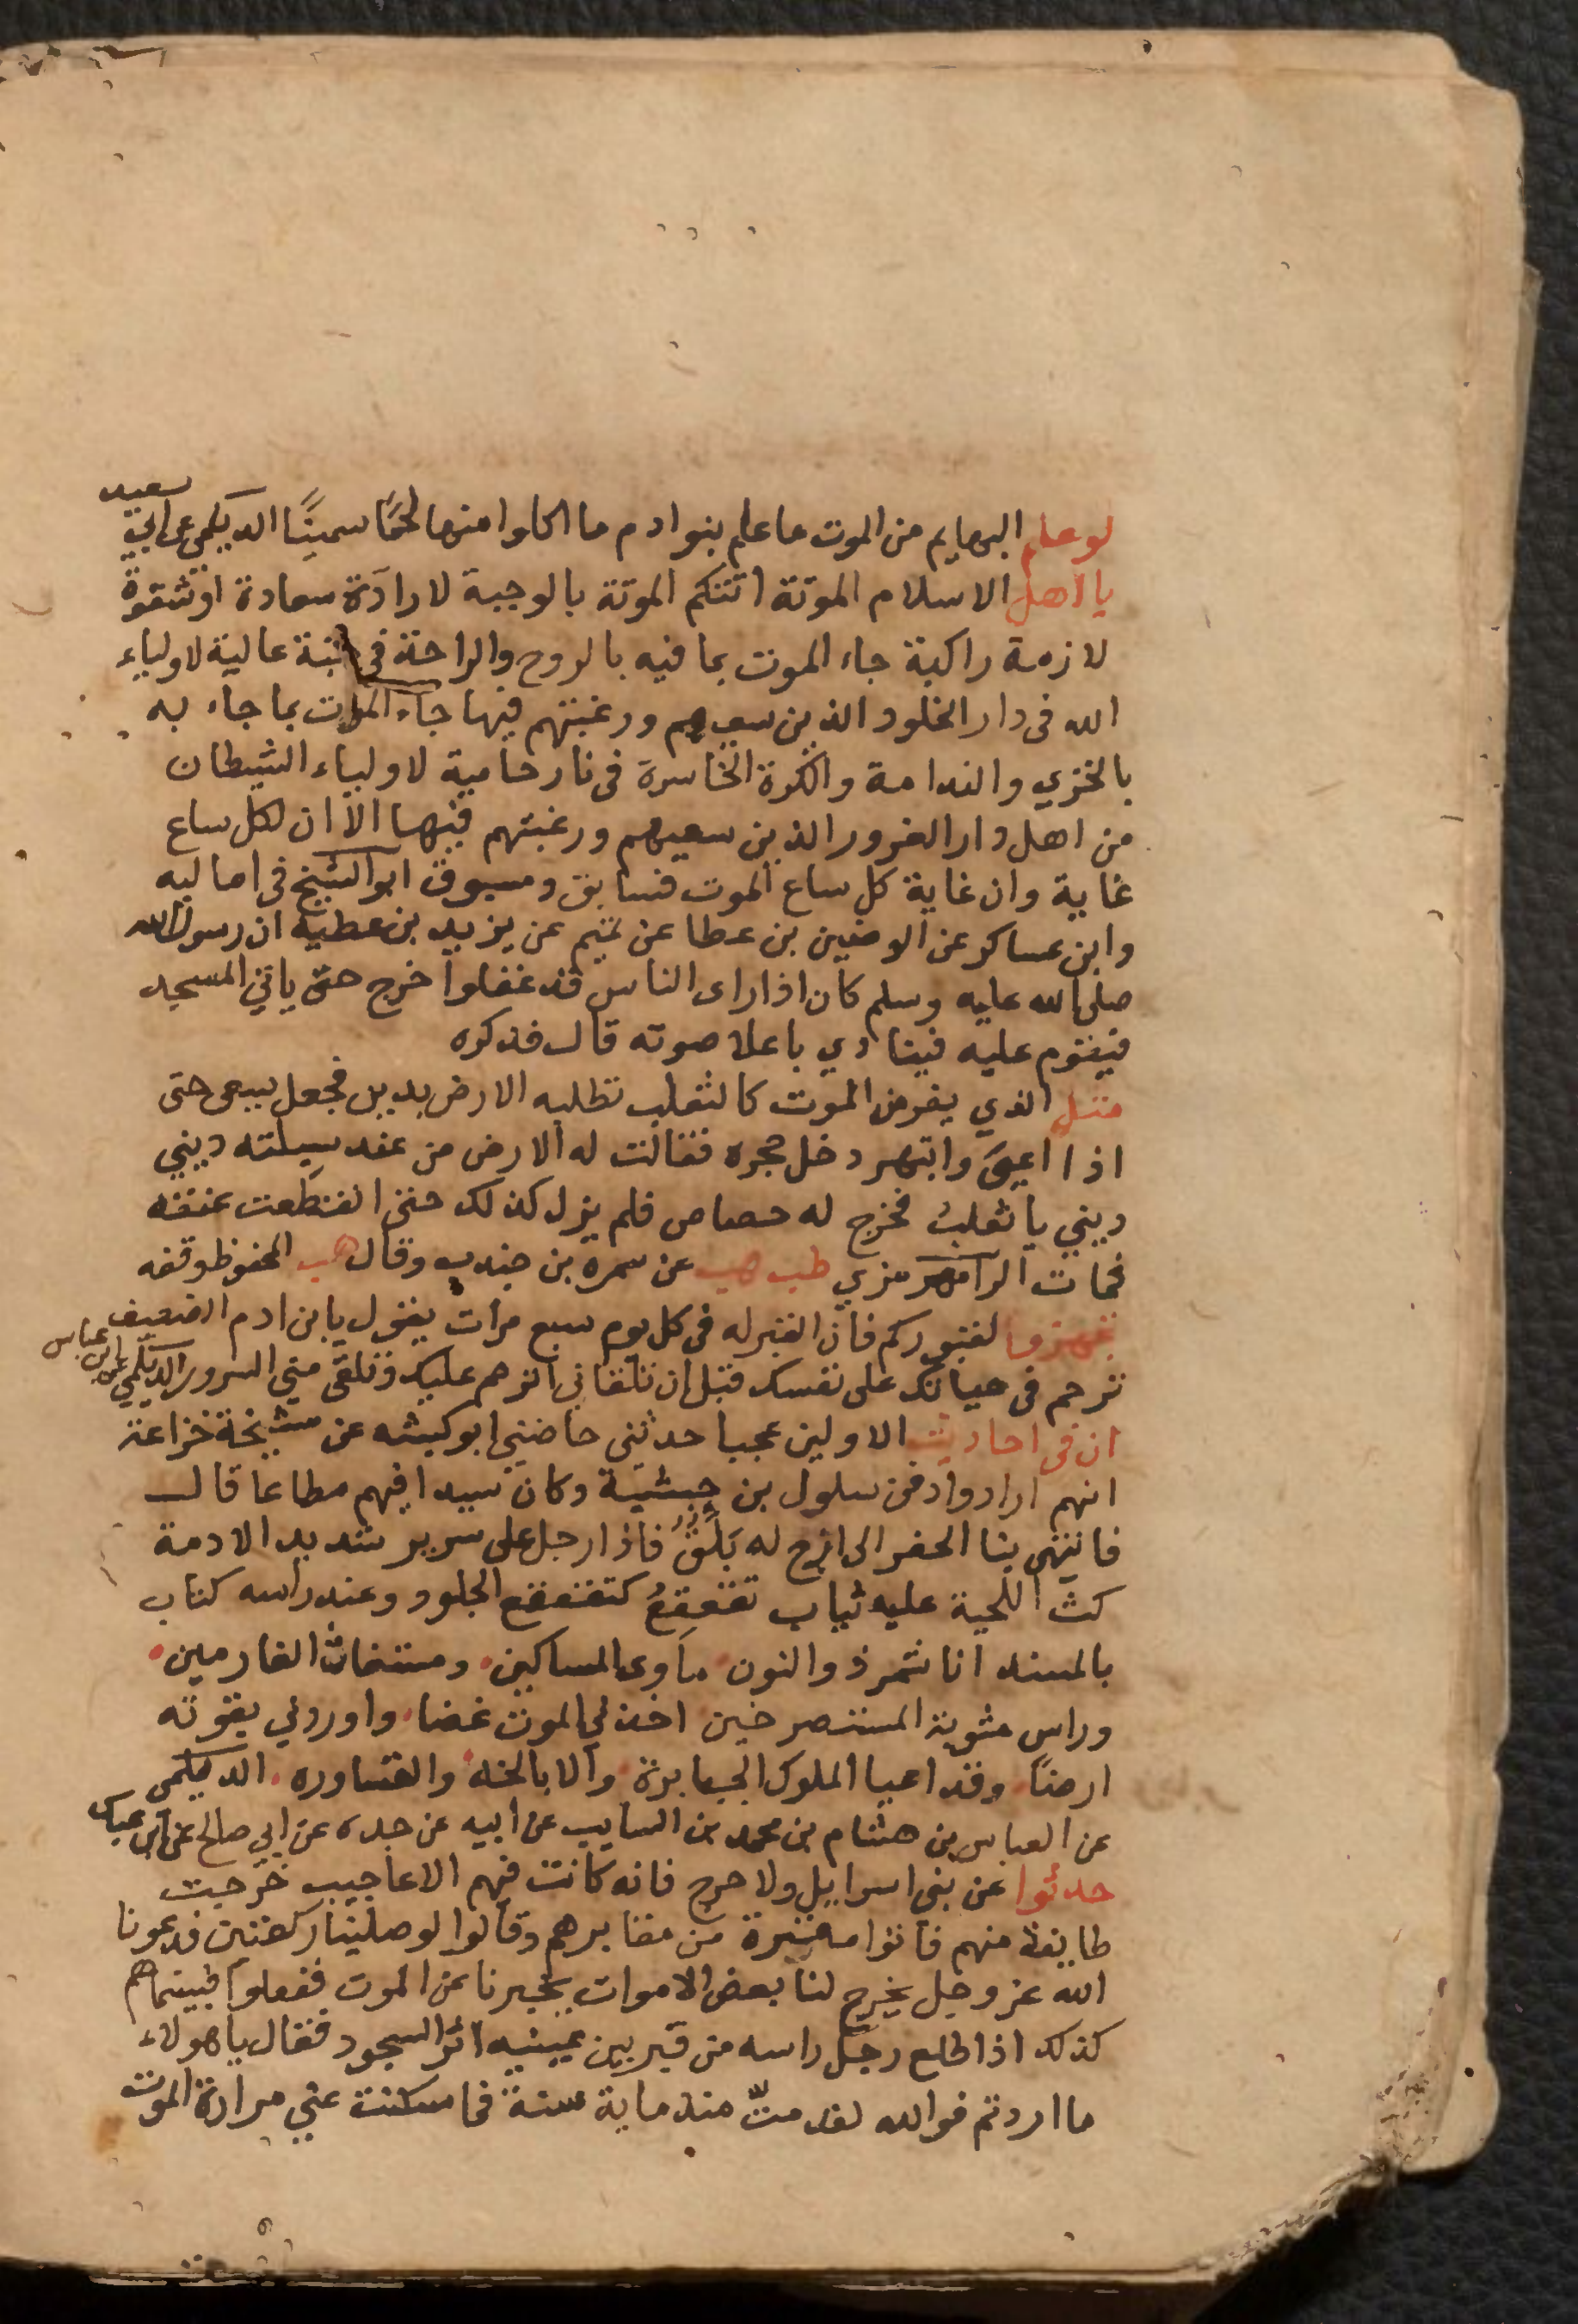 لو علم البهايم من الموت ما علم بنوادم ما اكلوا منها لحمًا سمينًا الديلمي عن ابي سعيد
يا اهل الاسلام الموتة اتتكم الموتة بالوجبة لا رادّة سعادة او شقوة
لازمة راكبة جاء الموت بما فيه بالروح والراحة في جنة عالية لاولياء
الله فى دار الخلود الذين سعيهم ورغبتهم فيها جاء الموت بما جاء به
بالخزي والندامة والكرة الخاسرة فى نار حامية لاولياء الشيطان
من اهل دار الغرور الذين سعيهم ورغبتهم فيها الا ان لكل ساع
غاية وان غاية كل ساع الموت فسابق ومسبوق ابو الشيخ في اماليه
وابن عساكر عن الوضين بن عطا عن تميم عن يزيد بن عطية ان رسول الله
صلى الله عليه وسلم كان اذا راى الناس قد غفلوا خرج حتى ياتي المسجد
فيقوم عليه فينادي باعلا صوته قال فذكره
مثل الذي يفر من الموت كالثعلب تطلبه الارض بدين فجعل يسعى حتى
اذا اعيى وابتهر دخل جحره فقالت له الارض من عند سبلته ديني
ديني يا ثعلبُ فخرج له حصاص فلم يزل كذلك حتى انقطعت عنقه
فمات الرامهرمزي طب هب عن سمره بن جندب وقال هب المحفوظ وقفه
تجهزوا لقبوركم فان القبر له في كل يوم سبع مرات يقول يا بن ادم الضعيف
ترحم فى حياتك على نفسك قبل ان تلقاني اترحم عليك وتلقى مني السرور الديلمي عن ابن عباس
ان فى احاديث الاولين عجبا حدثني حاضني ابو كبشه عن مشيخة خزاعة
انهم ارادوا دفن سلول بن حبشيّة وكان سيدا فيهم مطاعا قال
فانتهى بنا الحفر الى ازج له بَلَقٌ فاذا رجل على سرير شديد الادمة
كث اللحية عليه ثياب تقعقعُ كتقعقع الجلود وعند راسه كتاب
بالمسند انا شمر ذو النون ماوى المساكين ومستغاث الغارمين
وراس مثوبة المستصرخين اخذني الموت غضا واوردني بقوته
ارضًا وقد اعيا الملوك الجبابرة والابالخه والقساوره الديلمى
عن العباس بن هشام بن محمد بن السايب عن ابيه عن جده عن ابي صالح عن ابن عباس
حدثوا عن بنى اسرايل ولا حرج فانه كانت فيهم الاعاجيب خرجت
طايفة منهم فاتوا مقبرة من مقابرهم وقالوا لو صلينا ركعتين فدعونا
الله عز وجل يخرج لنا بعض الاموات يخبرنا عن الموت ففعلوا فبينما هم
كذلك اذ اطلع رجل راسه من قبر بين عينيه اثر السجود فقال يا هولاء
ما اردتم فوالله لقد متّ منذ ماية سنة فما سكنت عني مرارة الموت